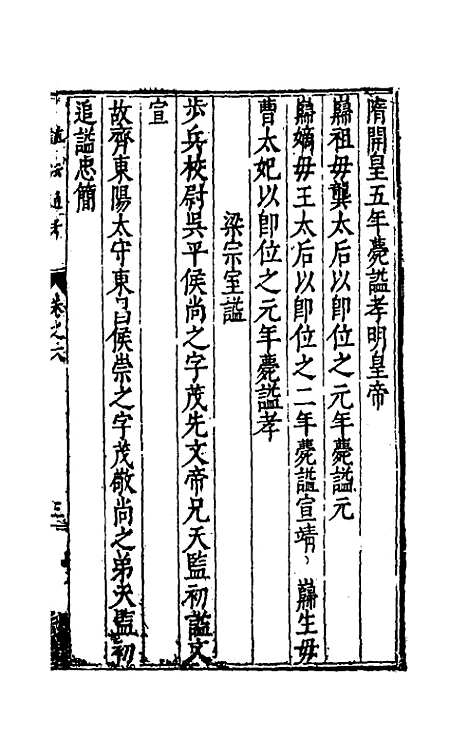 隋開皇五年薨謚孝明皇帝
巋祖毋龔太后以卽位之元年薨謚元
巋嫡毋王太后以卽位之二年薨謚宣靖 巋生毋
曹太妃以卽位之元年薨謚孝
梁宗室謚
步兵校尉吳平侯尚之字茂先文帝兄天監初謚文
宣
故齊東陽太守東昌侯崇之字茂敬尚之弟天監初
追謚忠簡
謚法通考 卷之六 三